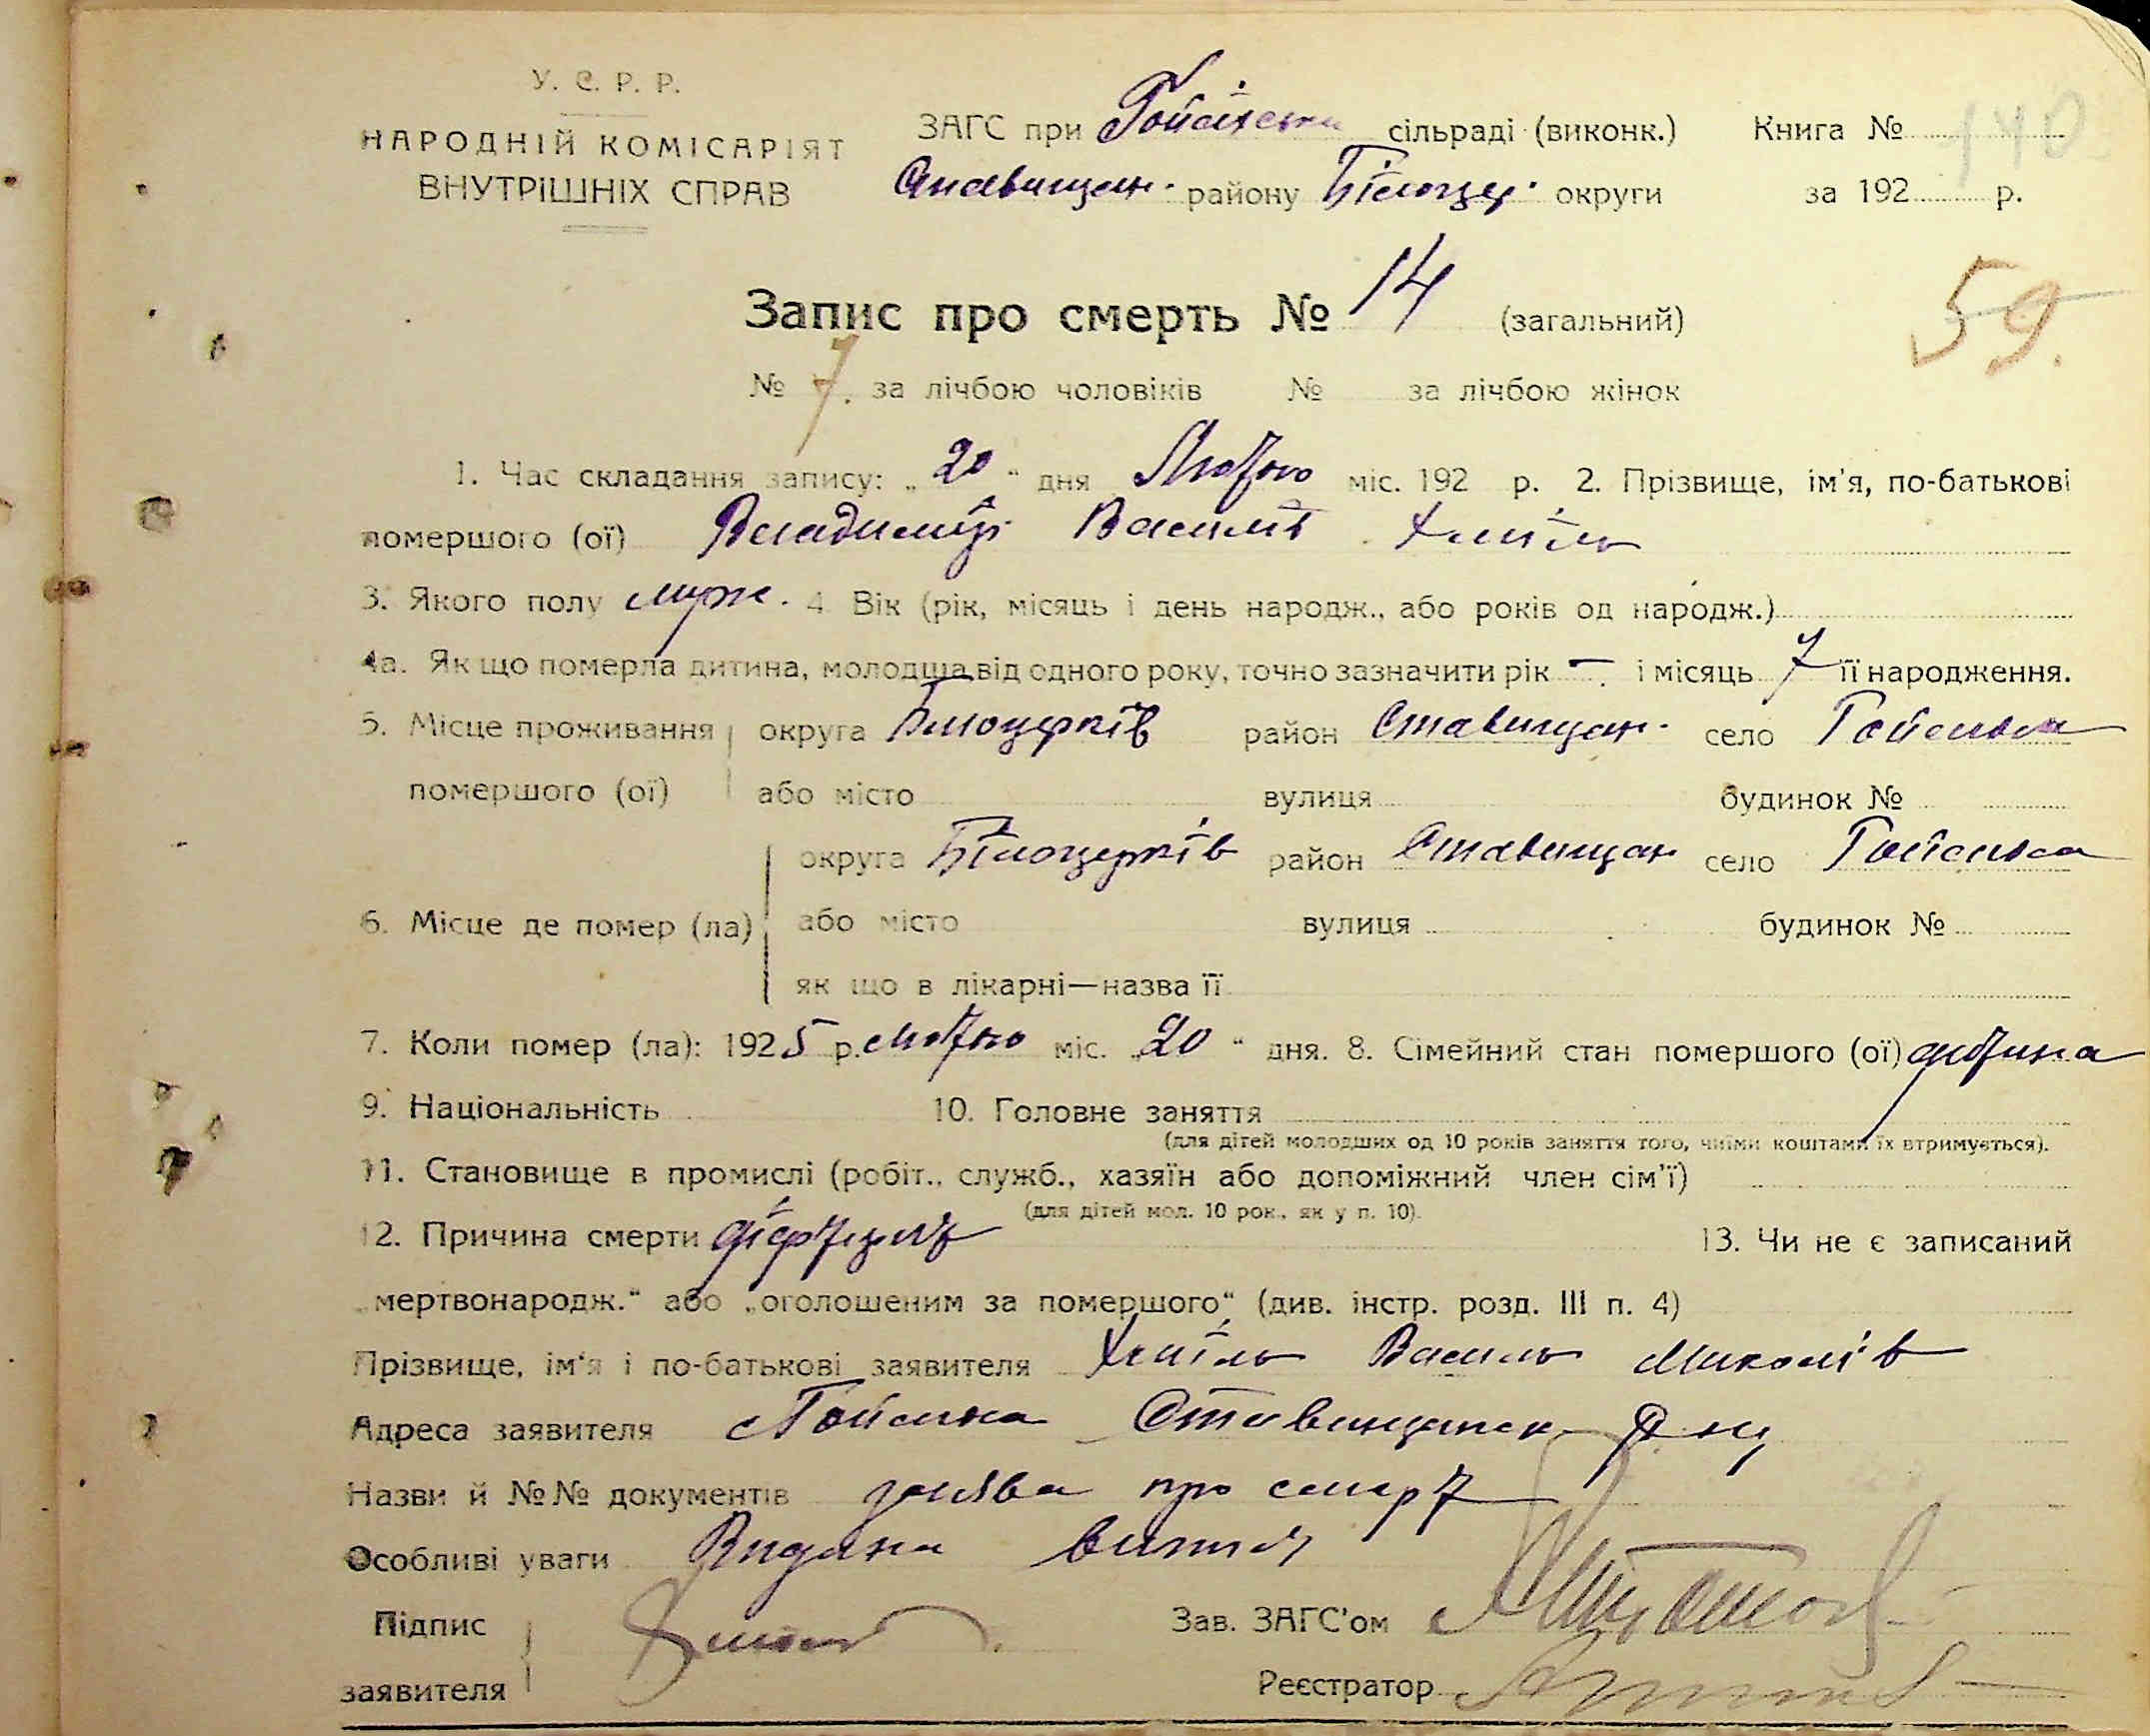 У. С. Р. Р.
НАРОДНІЙ КОМІСАРІЯТ
ВНУТРІШНІХ СПРАВ
ЗАГС при сільраді (виконк.) Книга № 140
Ставищан. району Білоцер. округи за 192 р.
Запис про смерть № 14 (загальний)
59.
№ 7. за лічбою чоловіків № за лічбою жінок
1. Час складання запису: „20“ дня Лютого міс. 192 р. 2. Прізвище, ім'я, по-батькові
помершого (ої) Владимір Василів Хміль
3. Якого полу муж. 4 Вік (рік, місяць і день народж., або років од народж.)
4а. Як що померла дитина, молодша від одного року, точно зазначити рік — і місяць 7 її народження.
5. Місце проживання округа Білоцерків район Ставищан. село Гейсиха
помершого (ої) або місто вулиця будинок №
округа Білоцерків район Ставищан село Гейсиха
6. Місце де помер (ла) або місто вулиця будинок №
як що в лікарні—назва її
7. Коли помер (ла): 1925 р. Лютого міс. „20“ дня. 8. Сімейний стан помершого (ої) дитина
9. Національність 10. Головне заняття
(для дітей молодших од 10 років заняття того, чиїми коштами їх втримується).
11. Становище в промислі (робіт., служб., хазяїн або допоміжний член сім'ї)
(для дітей мол. 10 рок., як у п. 10).
12. Причина смерти 13. Чи не є записаний
„мертвонародж.“ або „оголошеним за помершого“ (див. інстр. розд. III п. 4)
Прізвище, ім'я і по-батькові заявителя Хміль Василь Миколів
Адреса заявителя Ставищанск.
Назви й №№ документів заява про смерт
Особливі уваги Видана
Підпис Зав. ЗАГС'ом
заявителя Реєстратор